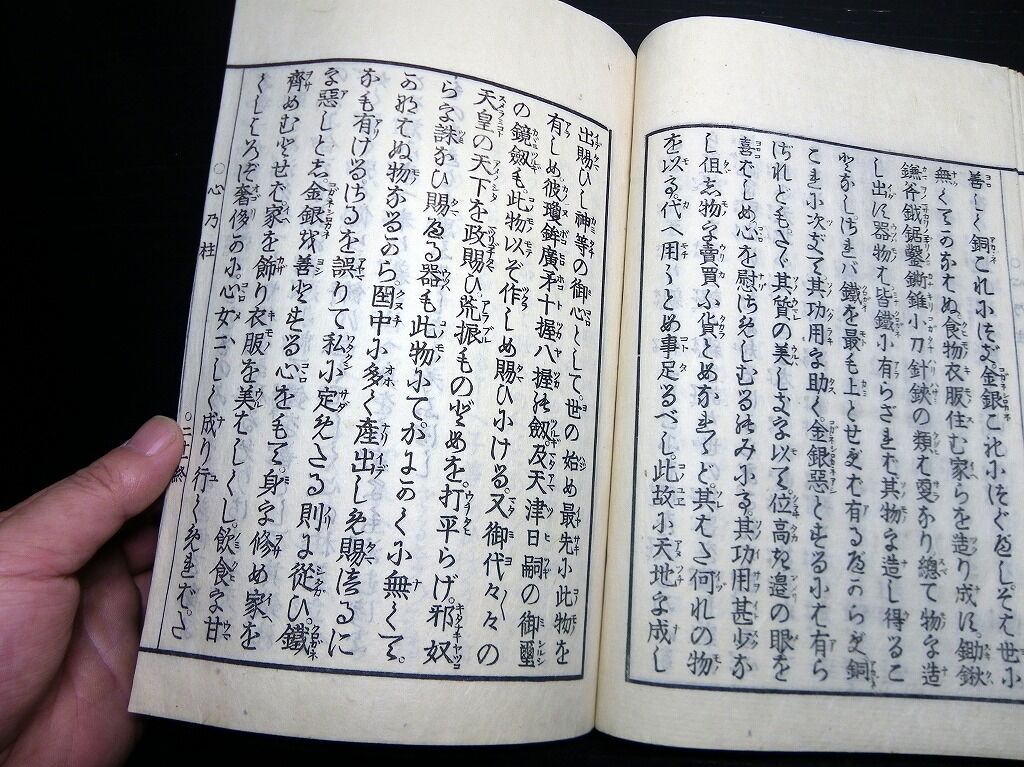 善しく銅これにつぎ金銀これにつぐべし。そは世に
無くてかなはぬ。食物衣服住む家らを造り成す。鋤鍬
鎌斧鉞鋸鑿鐁錐小刀針鋏の類は更なり總て物を造
し出す器物は皆鐵に有らざれば其物を造し得るこ
となし。されバ鐵を最も上とせずは有るべからず銅
これに次ぎて其功用を助く金銀惡しとするには有ら
ざれども。たゞ其質の美しきを以て位高き邊の眼を
喜ばしめ心を慰さましむるのみにて。其功用甚少な
し但し物を賣買ふ貨とは其はた何れの物
を以て代へ用うとも事足るべし。此故に天地を成し
出賜ひし神等の御心として。世の始め最先に此物を
有しめ彼瓊鉾廣矛十握八握の劔及天津日嗣の御璽
の鏡劔も此物以ぞ作しめ賜ひける。又御代々々の
天皇の天下を政賜ひ荒振ものどもを。打平らげ。邪奴
らを誅なひ賜へる器も此物にて。かにかくに無くて。
かなはぬ物なるから。国中に多く産出しめ賜へるに
なも有けるさるを誤りて私に定めたる則に從ひ。鐵
を惡しとし。金銀を善とする心をもて。身を修め家を
齊めむとせば家を飾り衣服を美はしくし。飲食を甘
くし奢侈の心女々しく成り行くめれば。さ
○心乃柱
○二十終